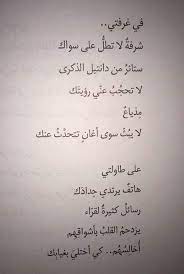 في غرفتي..
شرفةٌ لا تطلُّ على سواك
ستائرُ من دانتيل الذكرى
لا تحجُبُ عنّي رؤيتَك
مِذياعٌ
لا يبُثُ سوى أغانٍ تتحدّثُ عنك
على طاولتي
هاتفٌ يرتدي حِدادَك
رسائلُ كثيرةٌ لقرّاء
يزدحمُ القلبُ بأشواقِهِم
أُخالسُهُم.. كي أختليَ بغيابك